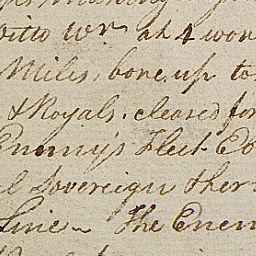 Ditto Wr at 4 wor
Miles, bore up to
& Royals, cleared for
Enemy's Fleet Eo
al Sovereign ther
Line The Enem